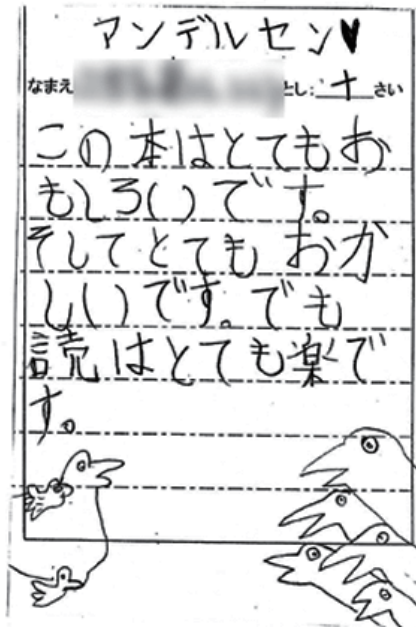 アンデルセン♥
なまえ とし:十さい
この本はとてもお
もしろいです。
そしてとてもおか
しいです。でも
読はとても楽で
す。